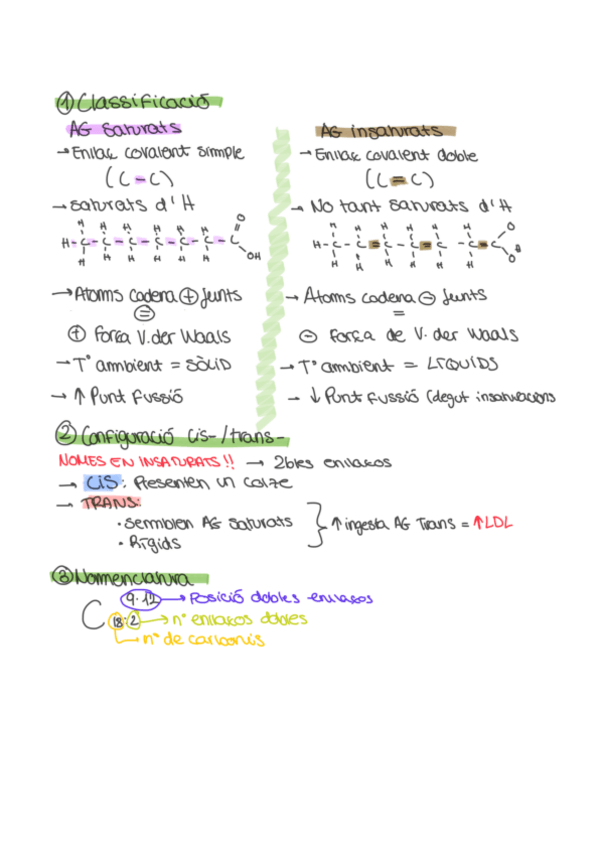 ① Classificació
AG saturats
→ Enllaç covalent simple
(C - C)
→ saturats d'H
H H H H H H O
H - C - C - C - C - C - C - C
H H H H H H OH
→ Atoms cadena ⊕ junts
=
⊕ Força V. der Waals
→ Tº ambient = SÒLID
→ ↑ Punt fussió
AG insaturats
→ Enllaç covalent doble
(C = C)
→ No tant saturats d'H
→ Atoms cadena ⊖ junts
=
⊖ Força de V. der Waals
→ Tº ambient = LÍQUIDS
→ ↓ Punt fussió (degut insaturacions
② Configuració cis-/trans-
NOMES EN INSATURATS!! → 2bles enllaços
→ CIS: Presenten un colze
→ TRANS:
· Semblen AG saturats
· Rígids
↑ ingesta AG Trans = ↑ LDL
③ Nomenclatura
9·12 → Posició dobles enllaços
C 18:2 → nº enllaços dobles
nº de carbonis